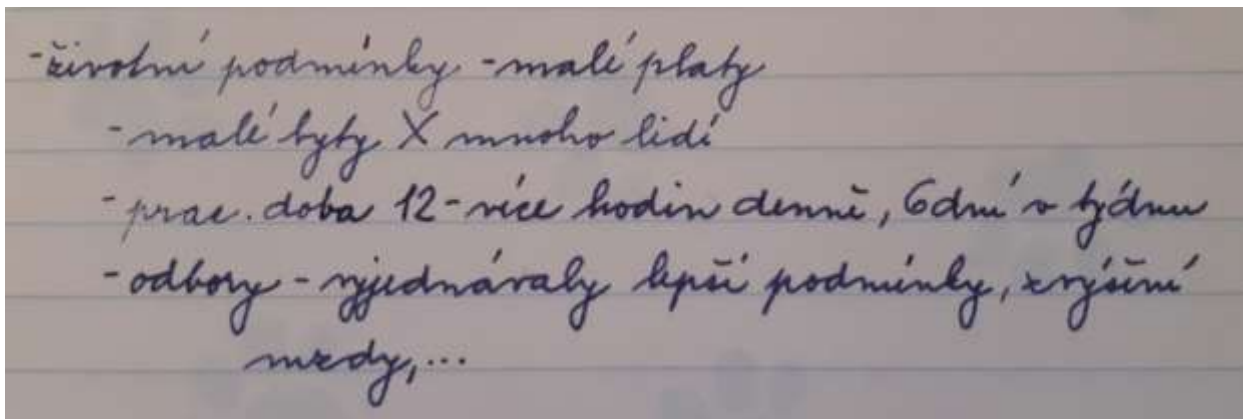 -životní podmínky -malé platy
-malé byty X mnoho lidí
-prac. doba 12-více hodin denně, 6dní v týdnu
-odbory - vyjednávaly lepší podmínky, zvýšení
mzdy,...